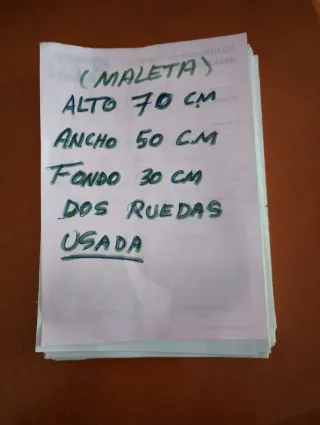 (MALETA)
ALTO 70 CM
ANCHO 50 CM
FONDO 30 CM
DOS RUEDAS
USADA